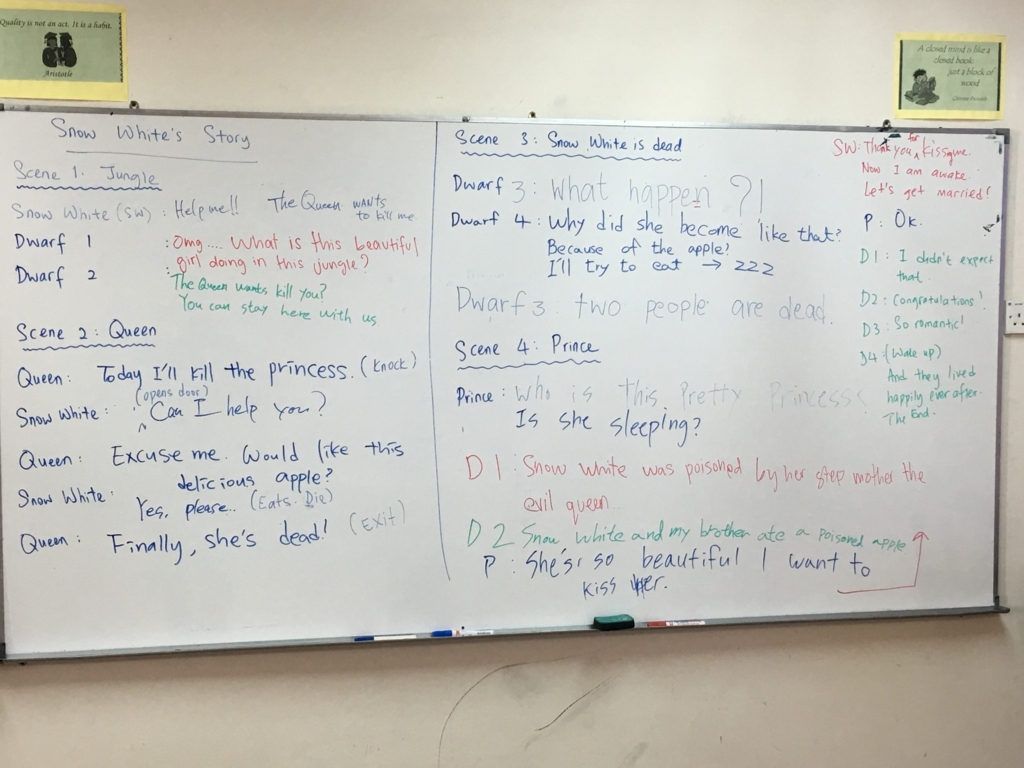 Quality is not an act. It is a habit.
Aristotle
A closed mind is like a
closed book:
just a block of
wood
Snow White's Story
Scene 1. Jungle
Snow White (SW) : Help me!! The Queen wants
to kill me
Dwarf 1 : Omg.... What is this beautiful
girl doing in this jungle?
Dwarf 2 : The Queen wants kill you?
You can stay here with us
Scene 2: Queen
Queen: Today I'll kill the princess. (Knock)
(opens door)
Snow White: ^ Can I help you?
Queen: Excuse me. Would like this
delicious apple?
Snow White: Yes, please.. (Eats. Die)
Queen: Finally, she's dead! (Exit)
Scene 3: Snow White is dead
Dwarf 3: What happen ?!
Dwarf 4: Why did she become like that?
Because of the apple?
I'll try to eat → zzz
Dwarf 3. two people are dead.
Scene 4: Prince
Prince: Who is This Pretty Princess
Is she sleeping?
D1: Snow white was poisoned by her step mother the
evil queen..
D2 Snow white and my brother ate a poisoned apple
P: She's so beautiful I want to
kiss her.
for
SW: Thank you ^ kiss me.
Now I am awake.
Let's get married!
P: Ok.
D1: I didn't expect
that.
D2: Congratulations!
D3: So romantic!
D4: (Wake up)
And they lived
happily ever after.
The End.